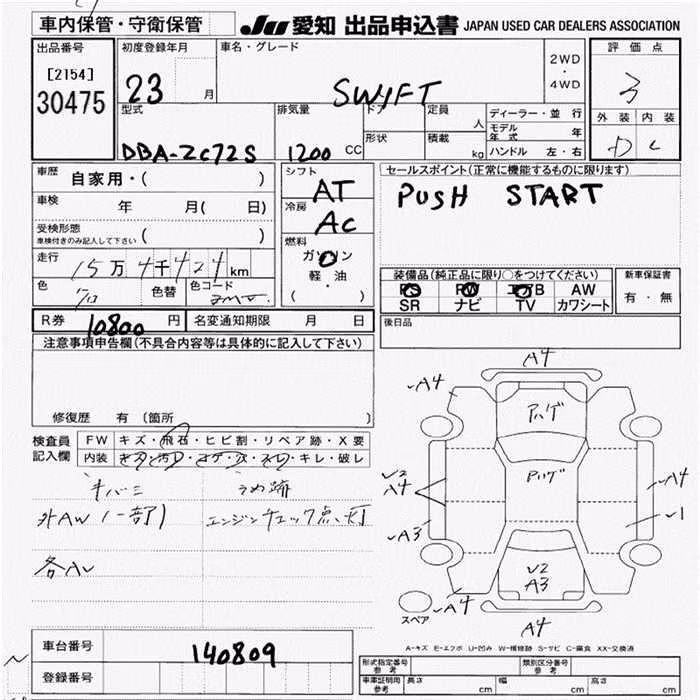 車内保管・守衛保管
JU 愛知 出品申込書 JAPAN USED CAR DEALERS ASSOCIATION
出品番号
[2154]
30475
初度登録年月
23
月
車名・グレード
SWIFT
2WD
・
4WD
評価点
3
外装 内装
D C
型式
DBA-ZC72S
排気量
1200 CC
ドア
形状
定員
人
積載
kg
ディーラー・並行
モデル年式 年
ハンドル 左・右
車歴 自家用・( )
車検 年 月( 日)
受検形態
車検付きのみ記入して下さい ( )
走行 15万4千424km
色 色替 色コード
シフト
AT
冷房
AC
燃料
ガソリン
軽・油
( )
セールスポイント(正常に機能するものに限ります)
PUSH START
装備品(純正品に限り○をつけてください)
PS PW エアB AW
SR ナビ TV カワシート
新車保証書
有・無
R券 10800 円 名変通知期限 月 日
後日品
注意事項申告欄(不具合内容等は具体的に記入して下さい)
修復歴 有(箇所 )
検査員
記入欄
FW キズ・飛石・ヒビ割・リペア跡・X要
内装 キズ・汚れ・コゲ・穴・スレ・キレ・破レ
キバミ ネジ跡
外AW(一部) エンジンチェック点灯
各AU
A4
A4
アハゲ
Pハゲ
V2
A4
A4
V1
A3
V2
A3
A4
A4
スペア
A-キズ E-エクボ U-凹み W-補修跡 S-サビ C-腐食 XX-交換済
車台番号 140809
登録番号
形式指定番号
参考
類別区分番号
参考
車庫証明用
参考
長さ cm 幅 cm 高さ cm